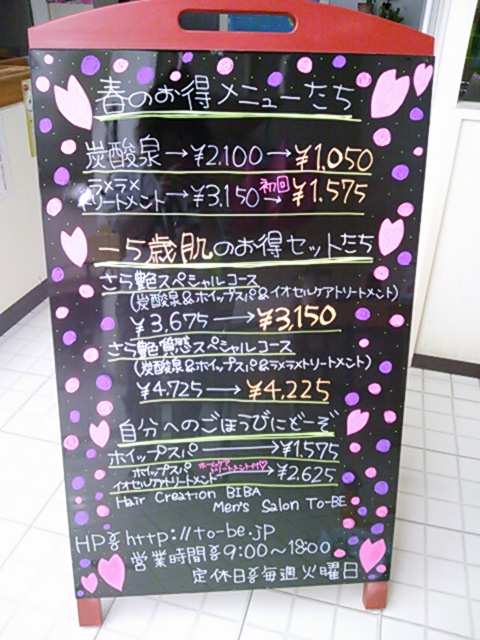 春のお得メニューたち
炭酸泉→¥2.100→¥1,050
ラメラメ
トリートメント→¥3.150→初回¥1.575
−5歳肌のお得セットたち
さら艶スペシャルコース
(炭酸泉&ホイップスパ&イオセルケアトリートメント)
¥3,675→¥3,150
さら艶質感スペシャルコース
(炭酸泉&ホイップスパ&ラメラメトリートメント)
¥4.725→¥4,225
自分へのごほうびにどーぞ
ホイップスパ→¥1.575
ホイップスパ
イオセルケアトリートメント→¥2.625
Hair Creation BIBA
Men's Salon To-BE
HP http://to-be.jp
営業時間 9:00〜18:00
定休日 毎週火曜日